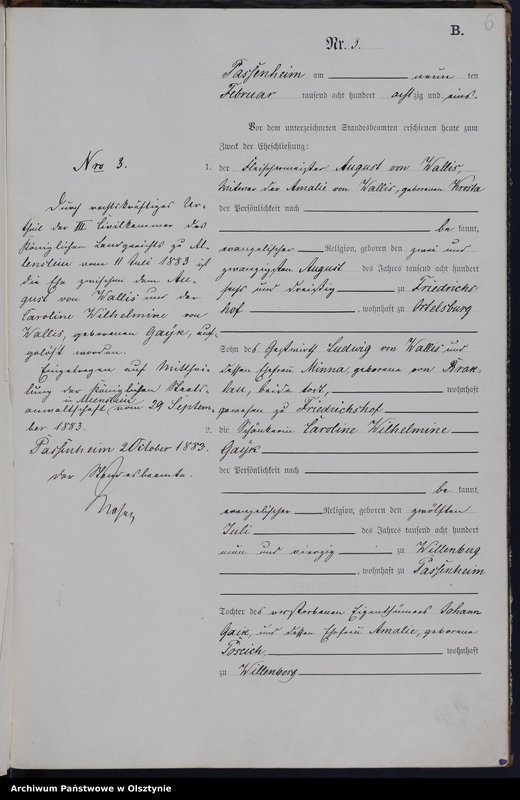 6
B.
Nr. 3.
Passenheim am neun ten
Februar tausend acht hundert achtzig und eins.
Vor dem unterzeichneten Standesbeamten erschienen heute zum
Zweck der Eheschließung:
1. der Fleischermeister August von Wallis,
Witwer der Amalie von Wallis, geborenen
der Persönlichkeit nach
be kannt,
evangelischer Religion, geboren den zwei und
zwanzigsten August des Jahres tausend acht hundert
sechs und dreißig zu Friedrichs-
hof, wohnhaft zu Ortelsburg
Sohn des Gastwirth Ludwig von Wallis und
dessen Ehefrau Minna, geborene von
beide todt, wohnhaft
gewesen zu Friedrichshof
2. die Schänkerin Caroline Wilhelmine
Gayk
der Persönlichkeit nach
be kannt,
evangelischer Religion, geboren den zwölften
Juli des Jahres tausend acht hundert
neun und vierzig zu Willenberg
, wohnhaft zu Passenheim
Tochter des verstorbenen Eigenthümers Johann
Gaik, und dessen Ehefrau Amalie, geborene
wohnhaft
zu Willenberg
Nro 3.
Durch rechtskräftiges Ur-
theil der III Civilkammer des
Königlichen Landgerichts zu Al-
lenstein vom 11 Juli 1883 ist
die Ehe zwischen dem Au-
gust von Wallis und der
Caroline Wilhelmine von
Wallis, geborenen Gayk, auf-
gelöst worden.
Eingetragen auf Mitthei-
lung der Königlichen Staats-
anwaltschaft in Allenstein vom 29 Septem-
ber 1883.
Passenheim 2 October 1883.
Der Standesbeamte.
Archiwum Państwowe w Olsztynie